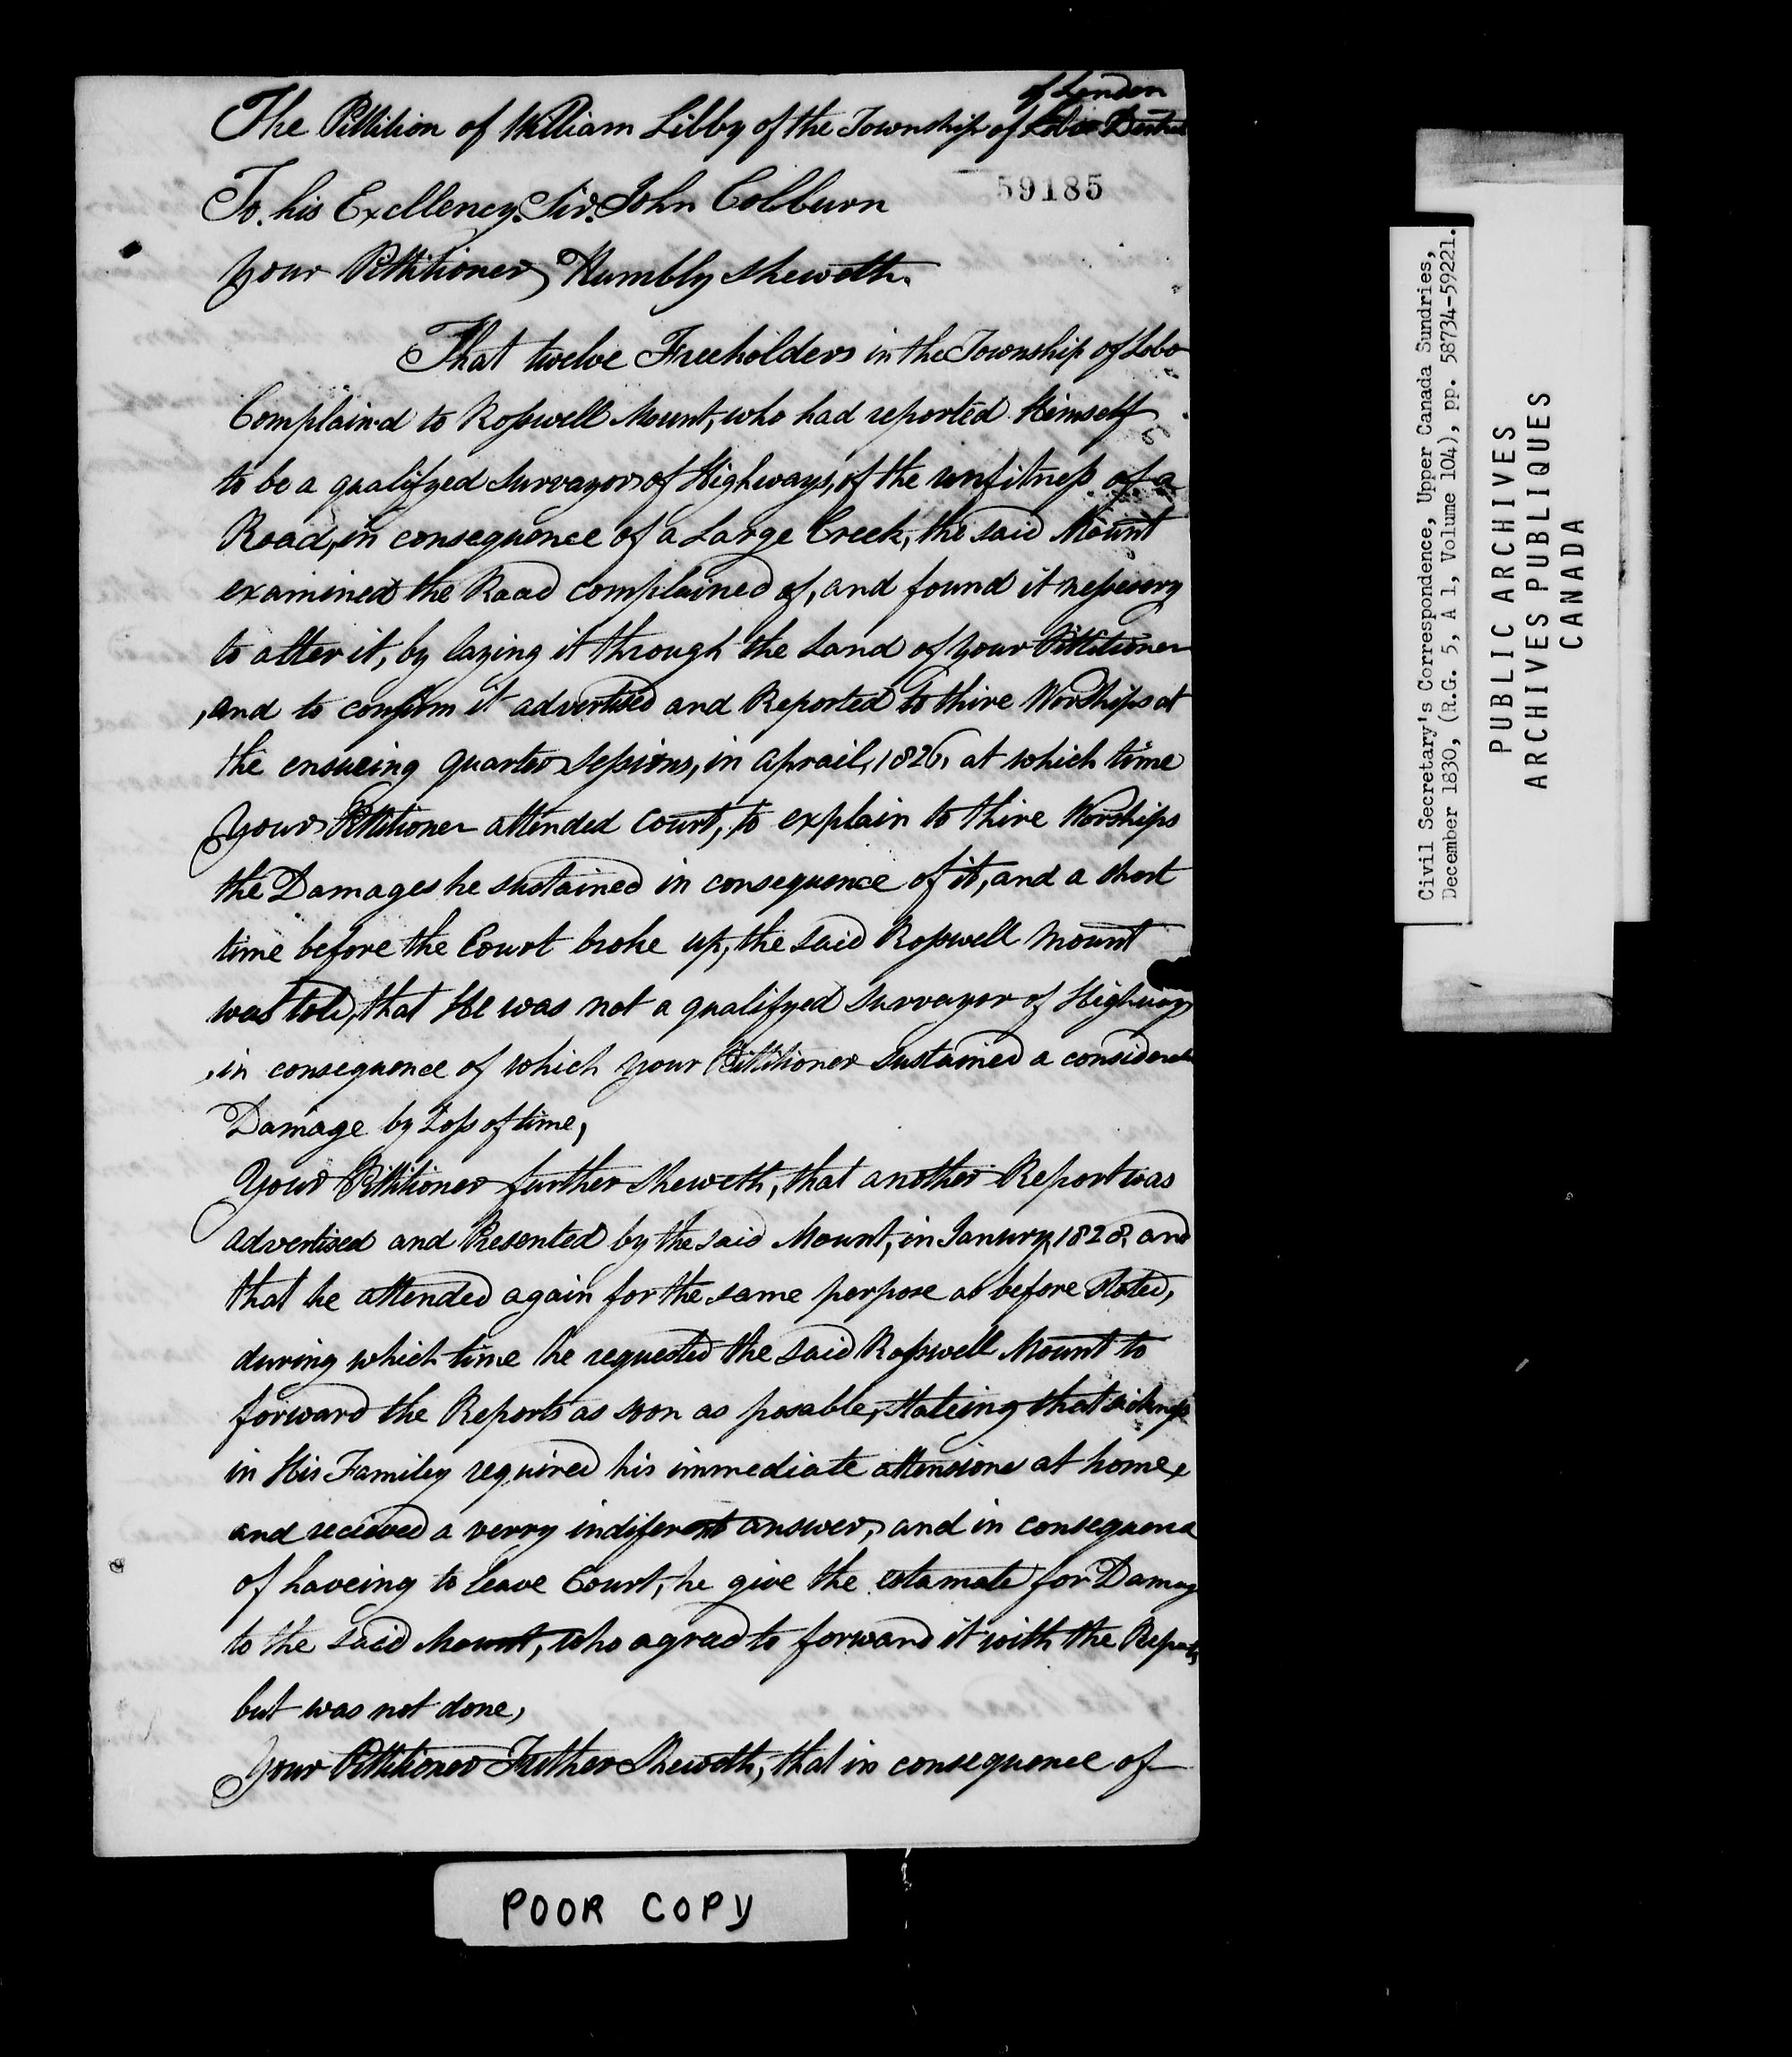 of London
The Pittition of William Libby of the Township of Lobo District
59185
To. his Excllency. Sir. John Colburn
Your Pittitioner Humbly sheweth.
That twelve Freeholders in the Township of Lobo
Complain.d to Rosswell Mount, who had reported Himself
to be a qualifyed Survayor of Highways, of the unfitness of a
Road, in consequence of a Large Creek, the said Mount
examined the Road complained of, and found it nessesery
to alter it, by laying it through the Land of your Pittitioner
, and to confirm it advertised and Reported to thire Worships at
the ensueing quarter sessions, in aprail, 1826, at which time
Your Pittitioner attended court, to explain to thire Worships
the Damages he sustained in consequence of it, and a short
time before the Court broke up, the said Rosswell Mount
was told, that He was not a qualifyed survayor of Highways
, in consequence of which your Pittitioner sustained a considerable
Damage by Loss of time,
Your Pittitioner further sheweth, that another Report was
advertised and Presented by the said Mount, in Janury, 1828, and
that he attended again for the same perpose as before stated,
during which time he requested the said Rosswell Mount to
forward the Reports as soon as posable, stateing that sickness
in His Familey required his immediate attensione at home,
and recieved a verry indiferent answer, and in consequence
of haveing to leave Court, he give the estamate for Damage
to the said Mount, who agread to forward it with the Reports,
but was not done,
Your Pittitioner Futher Sheweth, that in consequence of
POOR COPY
Civil Secretary's Correspondence, Upper Canada Sundries,
December 1830, (R.G. 5, A 1, Volume 104), pp. 58734-59221.
PUBLIC ARCHIVES
ARCHIVES PUBLIQUES
CANADA